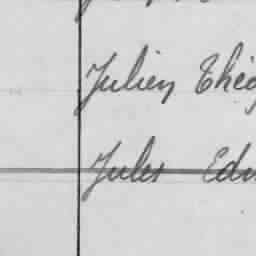 Julien Thég
Jules Edm